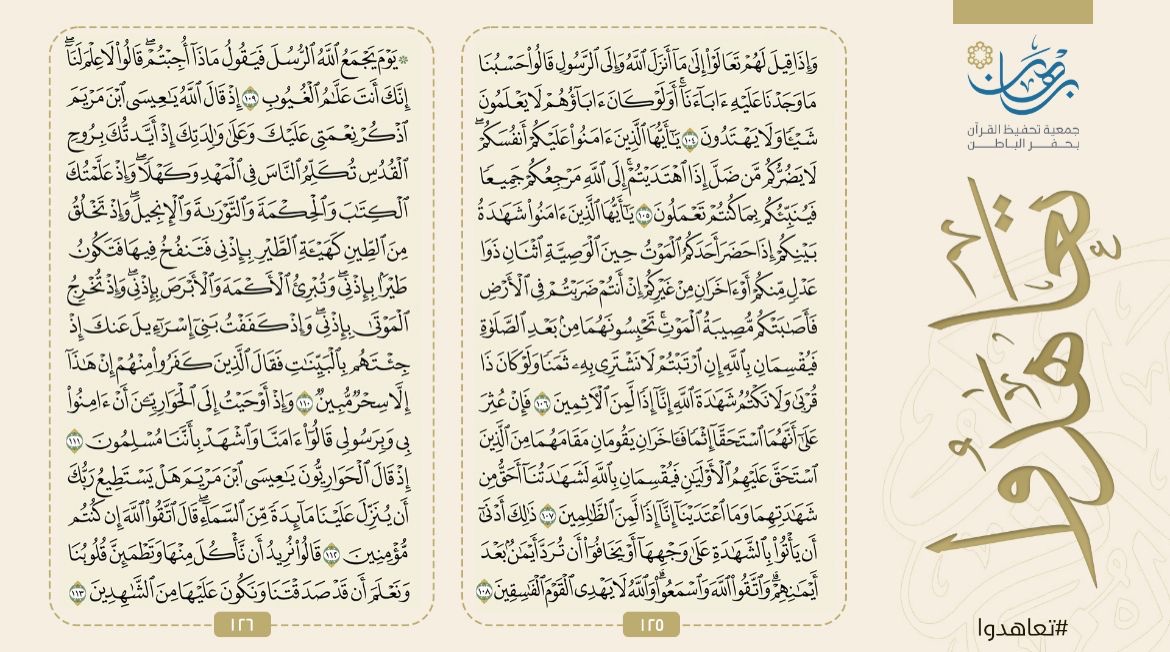 برهان
جمعية تحفيظ القرآن
بحفر الباطن
تعاهدوا
#تعاهدوا
وَإِذَا قِيلَ لَهُمْ تَعَالَوْا۟ إِلَىٰ مَآ أَنزَلَ ٱللَّهُ وَإِلَى ٱلرَّسُولِ قَالُوا۟ حَسْبُنَا
مَا وَجَدْنَا عَلَيْهِ ءَابَآءَنَآۚ أَوَلَوْ كَانَ ءَابَآؤُهُمْ لَا يَعْلَمُونَ
شَيْـًٔا وَلَا يَهْتَدُونَ ١٠٤ يَـٰٓأَيُّهَا ٱلَّذِينَ ءَامَنُوا۟ عَلَيْكُمْ أَنفُسَكُمْۖ
لَا يَضُرُّكُم مَّن ضَلَّ إِذَا ٱهْتَدَيْتُمْۚ إِلَى ٱللَّهِ مَرْجِعُكُمْ جَمِيعًا
فَيُنَبِّئُكُم بِمَا كُنتُمْ تَعْمَلُونَ ١٠٥ يَـٰٓأَيُّهَا ٱلَّذِينَ ءَامَنُوا۟ شَهَـٰدَةُ
بَيْنِكُمْ إِذَا حَضَرَ أَحَدَكُمُ ٱلْمَوْتُ حِينَ ٱلْوَصِيَّةِ ٱثْنَانِ ذَوَا
عَدْلٍ مِّنكُمْ أَوْ ءَاخَرَانِ مِنْ غَيْرِكُمْ إِنْ أَنتُمْ ضَرَبْتُمْ فِى ٱلْأَرْضِ
فَأَصَـٰبَتْكُم مُّصِيبَةُ ٱلْمَوْتِۚ تَحْبِسُونَهُمَا مِنۢ بَعْدِ ٱلصَّلَوٰةِ
فَيُقْسِمَانِ بِٱللَّهِ إِنِ ٱرْتَبْتُمْ لَا نَشْتَرِى بِهِۦ ثَمَنًا وَلَوْ كَانَ ذَا
قُرْبَىٰ وَلَا نَكْتُمُ شَهَـٰدَةَ ٱللَّهِ إِنَّآ إِذًا لَّمِنَ ٱلْـَٔاثِمِينَ ١٠٦ فَإِنْ عُثِرَ
عَلَىٰٓ أَنَّهُمَا ٱسْتَحَقَّآ إِثْمًا فَـَٔاخَرَانِ يَقُومَانِ مَقَامَهُمَا مِنَ ٱلَّذِينَ
ٱسْتَحَقَّ عَلَيْهِمُ ٱلْأَوْلَيَـٰنِ فَيُقْسِمَانِ بِٱللَّهِ لَشَهَـٰدَتُنَآ أَحَقُّ مِن
شَهَـٰدَتِهِمَا وَمَا ٱعْتَدَيْنَآ إِنَّآ إِذًا لَّمِنَ ٱلظَّـٰلِمِينَ ١٠٧ ذَٰلِكَ أَدْنَىٰٓ
أَن يَأْتُوا۟ بِٱلشَّهَـٰدَةِ عَلَىٰ وَجْهِهَآ أَوْ يَخَافُوٓا۟ أَن تُرَدَّ أَيْمَـٰنٌۢ بَعْدَ
أَيْمَـٰنِهِمْۗ وَٱتَّقُوا۟ ٱللَّهَ وَٱسْمَعُوا۟ۗ وَٱللَّهُ لَا يَهْدِى ٱلْقَوْمَ ٱلْفَـٰسِقِينَ ١٠٨
١٢٥
۞ يَوْمَ يَجْمَعُ ٱللَّهُ ٱلرُّسُلَ فَيَقُولُ مَاذَآ أُجِبْتُمْۖ قَالُوا۟ لَا عِلْمَ لَنَآۖ
إِنَّكَ أَنتَ عَلَّـٰمُ ٱلْغُيُوبِ ١٠٩ إِذْ قَالَ ٱللَّهُ يَـٰعِيسَى ٱبْنَ مَرْيَمَ
ٱذْكُرْ نِعْمَتِى عَلَيْكَ وَعَلَىٰ وَٰلِدَتِكَ إِذْ أَيَّدتُّكَ بِرُوحِ
ٱلْقُدُسِ تُكَلِّمُ ٱلنَّاسَ فِى ٱلْمَهْدِ وَكَهْلًاۖ وَإِذْ عَلَّمْتُكَ
ٱلْكِتَـٰبَ وَٱلْحِكْمَةَ وَٱلتَّوْرَىٰةَ وَٱلْإِنجِيلَۖ وَإِذْ تَخْلُقُ
مِنَ ٱلطِّينِ كَهَيْـَٔةِ ٱلطَّيْرِ بِإِذْنِى فَتَنفُخُ فِيهَا فَتَكُونُ
طَيْرًۢا بِإِذْنِىۖ وَتُبْرِئُ ٱلْأَكْمَهَ وَٱلْأَبْرَصَ بِإِذْنِىۖ وَإِذْ تُخْرِجُ
ٱلْمَوْتَىٰ بِإِذْنِىۖ وَإِذْ كَفَفْتُ بَنِىٓ إِسْرَٰٓءِيلَ عَنكَ إِذْ
جِئْتَهُم بِٱلْبَيِّنَـٰتِ فَقَالَ ٱلَّذِينَ كَفَرُوا۟ مِنْهُمْ إِنْ هَـٰذَآ
إِلَّا سِحْرٌ مُّبِينٌ ١١٠ وَإِذْ أَوْحَيْتُ إِلَى ٱلْحَوَارِيِّـۧنَ أَنْ ءَامِنُوا۟
بِى وَبِرَسُولِى قَالُوٓا۟ ءَامَنَّا وَٱشْهَدْ بِأَنَّنَا مُسْلِمُونَ ١١١
إِذْ قَالَ ٱلْحَوَارِيُّونَ يَـٰعِيسَى ٱبْنَ مَرْيَمَ هَلْ يَسْتَطِيعُ رَبُّكَ
أَن يُنَزِّلَ عَلَيْنَا مَآئِدَةً مِّنَ ٱلسَّمَآءِۖ قَالَ ٱتَّقُوا۟ ٱللَّهَ إِن كُنتُم
مُّؤْمِنِينَ ١١٢ قَالُوا۟ نُرِيدُ أَن نَّأْكُلَ مِنْهَا وَتَطْمَئِنَّ قُلُوبُنَا
وَنَعْلَمَ أَن قَدْ صَدَقْتَنَا وَنَكُونَ عَلَيْهَا مِنَ ٱلشَّـٰهِدِينَ ١١٣
١٢٦